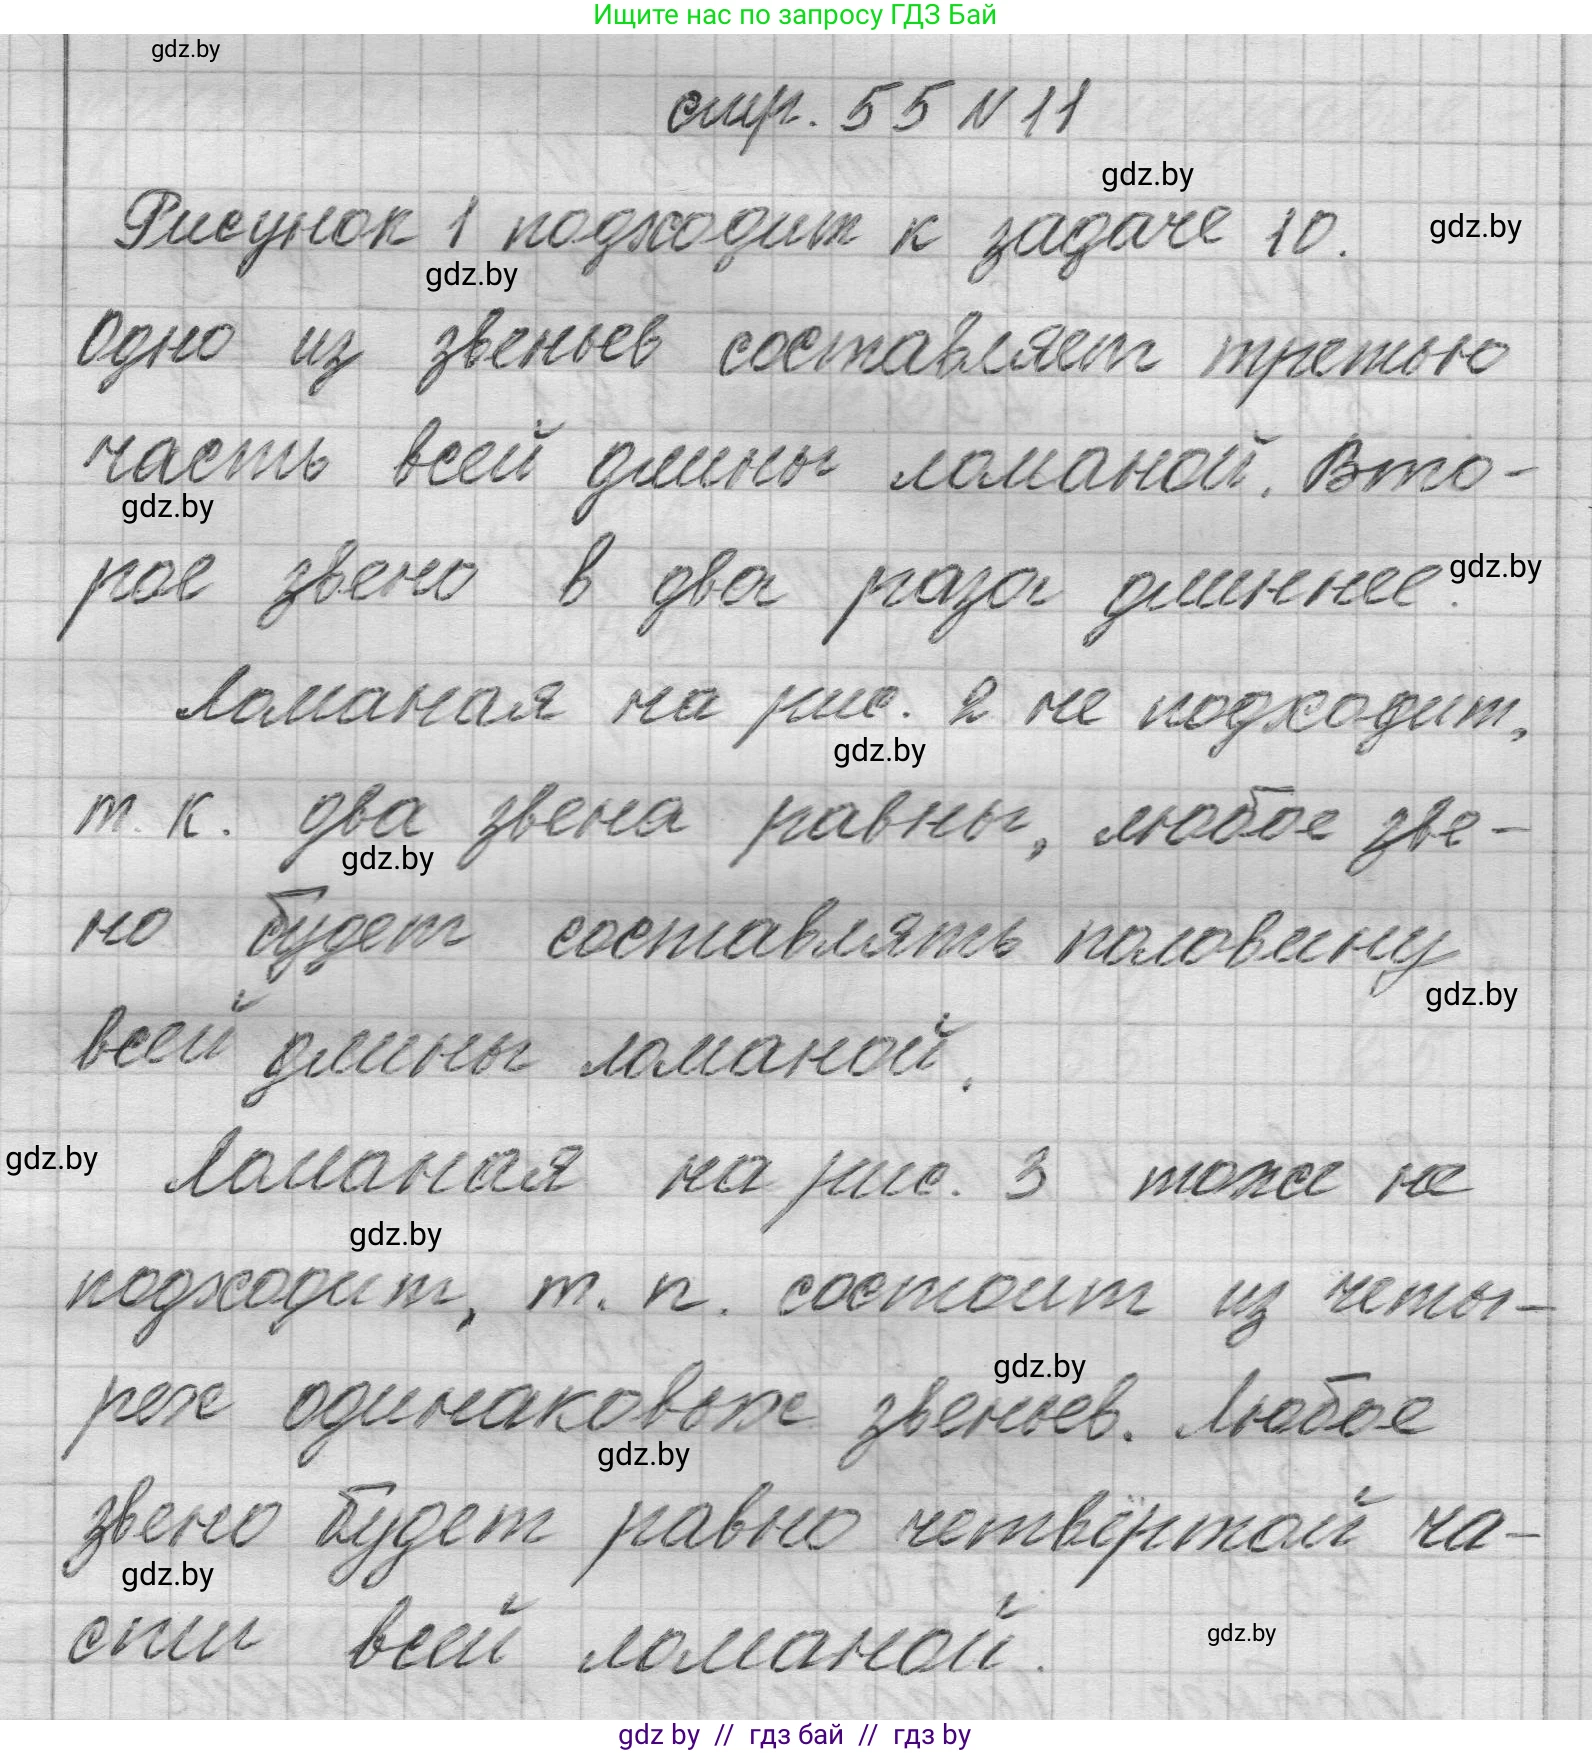 Ищите нас по запросу ГДЗ Бай
gdz.by
стр. 55 N 11
gdz.by
Рисунок 1 подходит к задаче 10.
gdz.by
gdz.by
Одно из звеньев составляет третью
часть всей длины ломаной. Вто-
gdz.by
рое звено в два раза длиннее.
gdz.by
Ломаная на рис. 2 не подходит,
gdz.by
т. к. два звена равны, любое зве-
gdz.by
но будет составлять половину
gdz.by
всей длины ломаной.
gdz.by
Ломаная на рис. 3 тоже не
gdz.by
подходит, т. к. состоит из четы-
gdz.by
рех одинаковых звеньев. Любое
gdz.by
звено будет равно четвёртой ча-
gdz.by
сти всей ломаной.
gdz.by
gdz by // гдз бай // гдз by